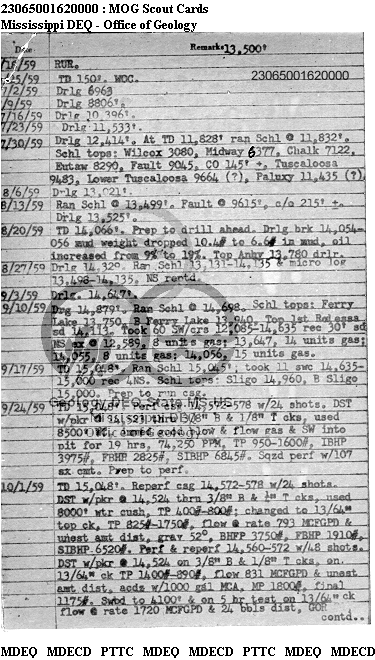 23065001620000 : MOG Scout Cards
Mississippi DEQ - Office of Geology
Date Remarks 13,500'
RUR.
TD 150'. WOC. 23065001620000
7/2/59 Drlg 6963
7/9/59 Drlg 8806'.
7/16/59 Drlg 10,396'.
7/23/59 Drlg 11,533'.
7/30/59 Drlg 12,414'. At TD 11,828' ran Schl @ 11,832'.
Schl tops: Wilcox 3080, Midway 6377, Chalk 7122,
Eutaw 8290, Fault 9045, CO 145' +, Tuscaloosa
9483, Lower Tuscaloosa 9664 (?), Paluxy 11,435 (?).
8/6/59 Drlg 13,021'.
8/13/59 Ran Schl @ 13,499'. Fault @ 9615', c/o 215' +.
Drlg 13,525'.
8/20/59 TD 14,066'. Prep to drill ahead. Drlg brk 14,054-
056 mud weight dropped 10.4# to 6.6# in mud, oil
increased from 9% to 19%. Top Anhy 13,780 drlr.
8/27/59 Ran Schl 13,131-14,135 & micro log
13,498-14,135. NS reptd.
9/3/59 Drlg. 14,647'.
9/10/59 Drg 14,879'. Ran Schl @ 14,698. Schl tops: Ferry
Lake 13,750, B Ferry Lake 13,940, Top 1st Rodessa
sd 14,113. Took 60 SW/crs 12,085-14,635 rec 30' sd
NS ex @ 12,589, 8 units gas; 13,647, 14 units gas;
14,055, 8 units gas; 14,056, 15 units gas.
9/17/59 TD 15,048'. Ran Schl 15,045'; took 11 swc 14,635-
15,000 rec 4NS. Schl tops: Sligo 14,960, B Sligo
15,000. Prep to run csg.
9/24/59 TD 15,048'. Perf csg 14,572-578 w/24 shots. DST
w/pkr @ 14,521 thru 3/8" B & 1/8" T cks, used
8500' flow & flow gas & SW into
pit for 19 hrs, 74,250 PPM, TP 950-1600#, IBHP
3975#, FBHP 2825#, SIBHP 6845#. Sqzd perf w/107
sx cmt. Prep to perf.
10/1/59 TD 15,048'. Reperf csg 14,572-578 w/24 shots.
DST w/pkr @ 14,524 thru 3/8" B & ¼" T cks, used
8000' wtr cush, TP 400#-800#; changed to 13/64"
top ck, TP 825#-1750#, flow @ rate 793 MCFGPD &
unest amt dist, grav 52°, BHFP 3750#, FBHP 1910#,
SIBHP 6520#. Perf & reperf 14,560-572 w/48 shots.
DST @ 14,524 on 3/8" B & 1/8" T cks, on
13/64" ck TP 1400#-890#, flow 831 MCFGPD & unest
amt dist, acdz w/1000 gal MCA, MP 1800#, final
1175#. Swbd to 4100' & on 5 hr test on 13/64" ck
flow @ rate 1720 MCFGPD & 24 bbls dist, GOR
contd..
MDEQ MDECD PTTC MDEQ MDECD PTTC MDEQ MDECD